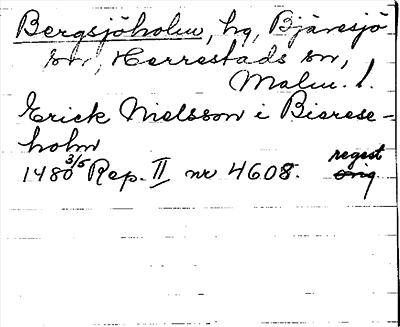 Bergsjöholm, hg, Bjäresjö
sn, Herrestads sn,
Malm. l.
Erick Nielsson i Bierese-
holm
1480 3/5 Rep. II nr 4608. regest
orig